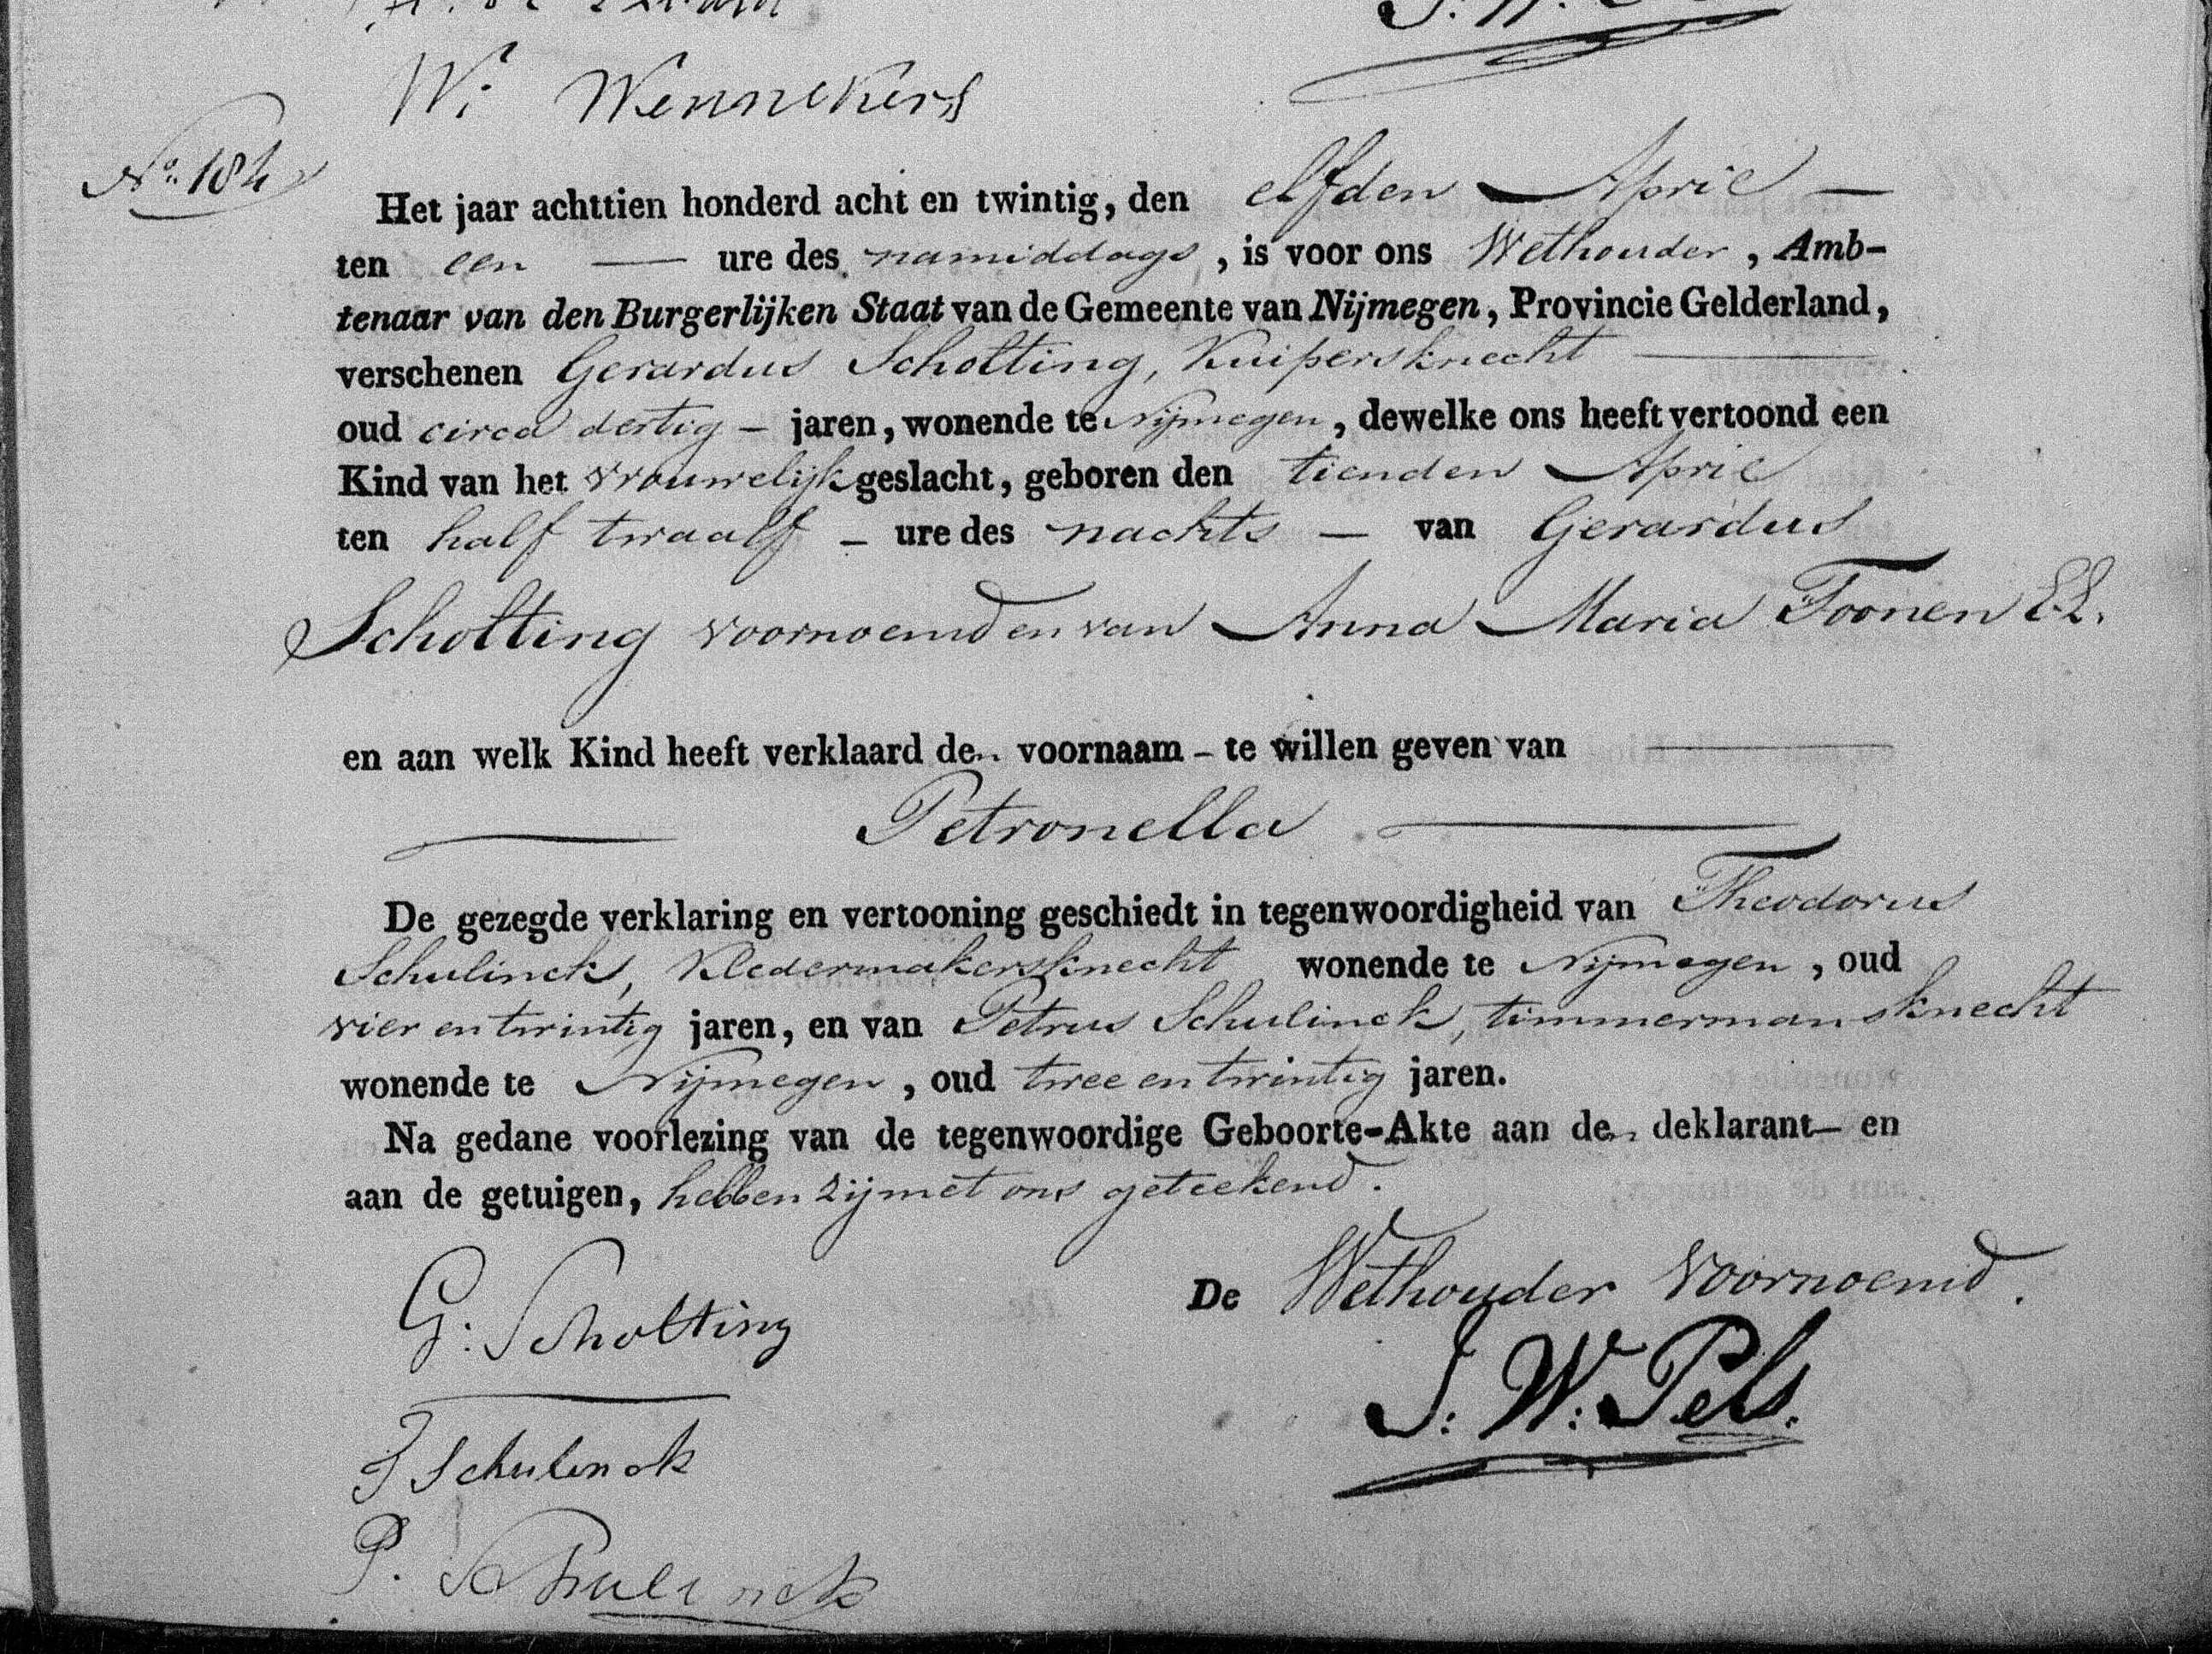 W: Wennekers
No. 184
Het jaar achttien honderd acht en twintig, den elfden April —
ten een — ure des namiddags, is voor ons Wethouder, Amb-
tenaar van den Burgerlijken Staat van de Gemeente van Nijmegen, Provincie Gelderland,
verschenen Gerardus Scholting, Kuipersknecht —
oud circa dertig – jaren, wonende te Nijmegen, dewelke ons heeft vertoond een
Kind van het vrouwelijk geslacht, geboren den tienden April
ten half twaalf – ure des nachts — van Gerardus
Scholting voornoemd en van Anna Maria Toonen E.L.
en aan welk Kind heeft verklaard den voornaam – te willen geven van —
— Petronella —
De gezegde verklaring en vertooning geschiedt in tegenwoordigheid van Theodorus
Schulinck, Kledermakersknecht wonende te Nijmegen, oud
vier en twintig jaren, en van Petrus Schulinck, timmermansknecht
wonende te Nijmegen, oud twee en twintig jaren.
Na gedane voorlezing van de tegenwoordige Geboorte-Akte aan den deklarant — en
aan de getuigen, hebben zij met ons geteekend.
De Wethouder voornoemd.
G: Scholting
J: W: Pels.
T Schulinck
P. Schulinck